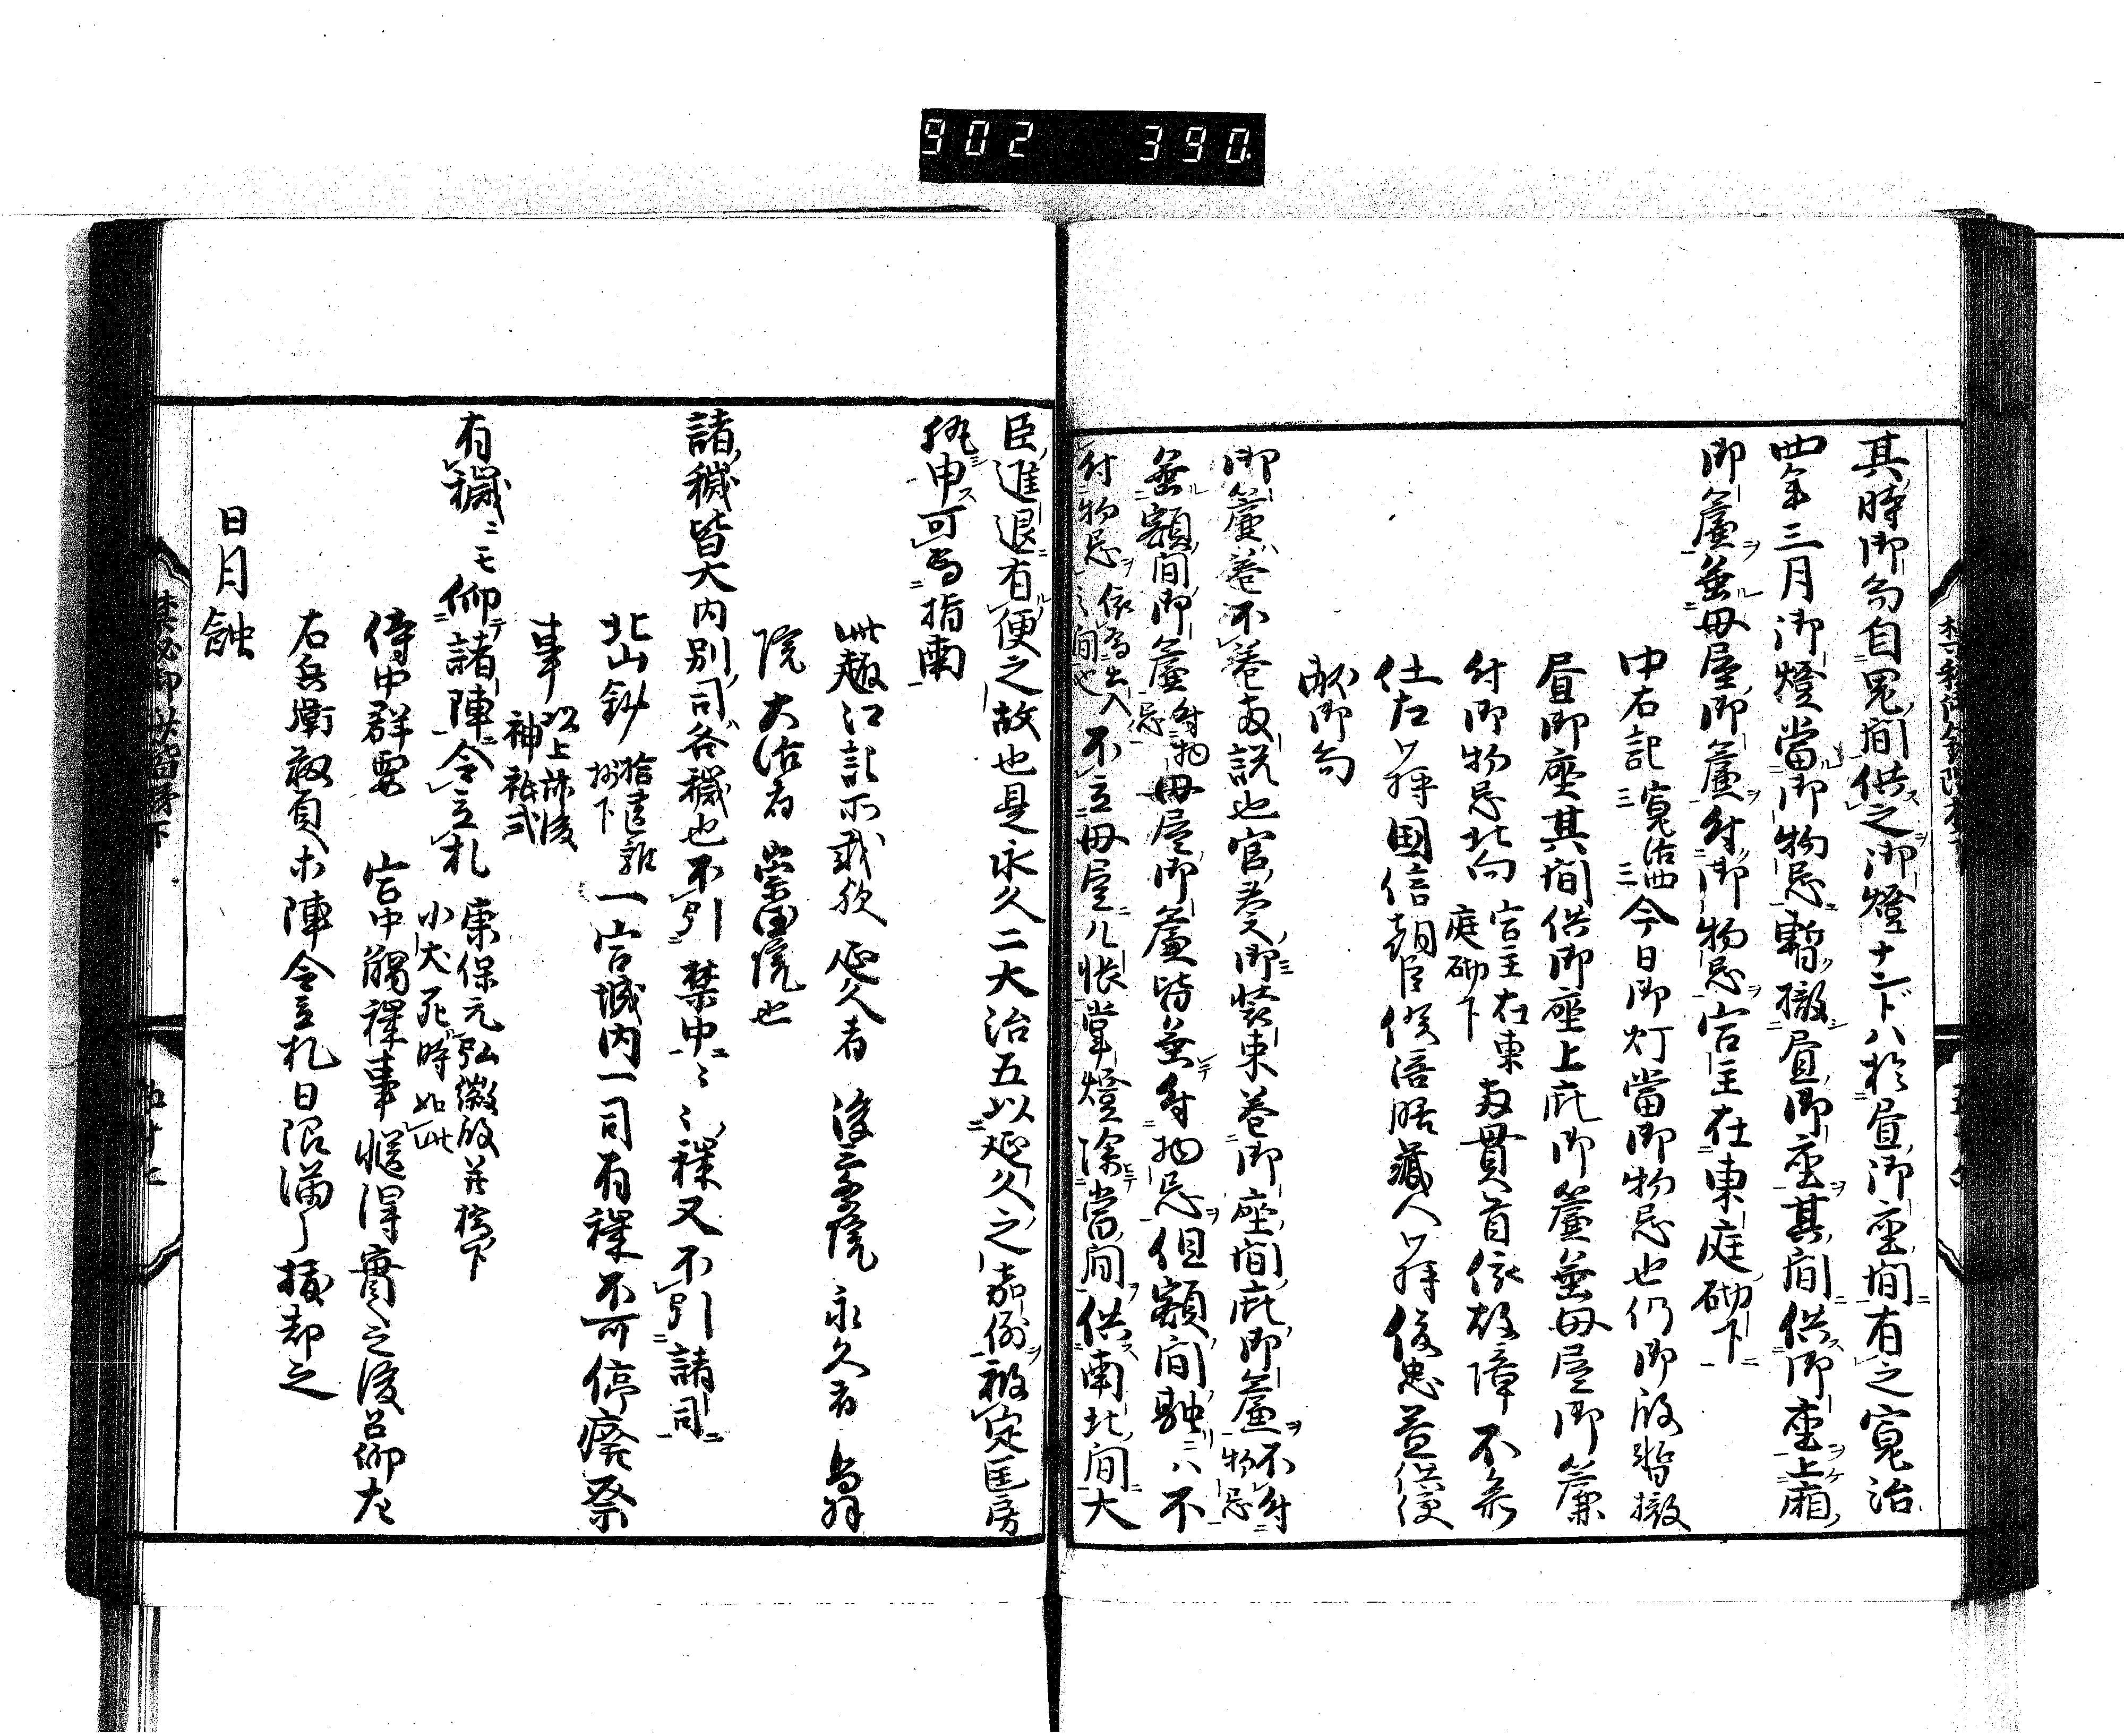 902 390.
其時御笏自鬼間供之御燈ナンドハ於昼御座間有之寛治
四年三月御燈當御物忌暫撤昼御座其間供御座上廂
御簾垂母屋御簾付御物忌宮主在東庭砌下
中右記寛治四三三今日御灯當御物忌也仍御殿暫撤
昼御座其間供御座上庇御簾垂母屋御簾
付御物忌北向宮主在東庭砌下 貫首依故障不参
仕左少弁国信朝臣候陪膳蔵人少弁俊忠益供便
献御笏
御簾巻不巻両説也官参御装束巻御座間庇御簾不付物忌
垂額間御簾付物忌母屋御簾皆垂付物忌但額間融ハ不
付物忌依為出入之間也不立母屋几帳掌燈除當間供南北間大
臣進退有便之故也是永久二大治五以延久之嘉例被定匡房
執申可為指南
此趣江記所載欤延久者後三条院永久者鳥羽
院大治者崇徳院也
諸穢皆大内別司各穢也不引禁中々々穢又不引諸司
北山鈔拾遺雑抄下一宮城内一司有穢不可停廃祭
事以上亦後神祇式
有穢ニモ仰諸陣令立札康保元弘徽殿井橋下小犬死時如此
侍中群要 宮中觸穢事慥得實之後召仰左
右兵衛叙負木陣令立札日限満了撤却之
日月蝕
禁秘御抄階梯下